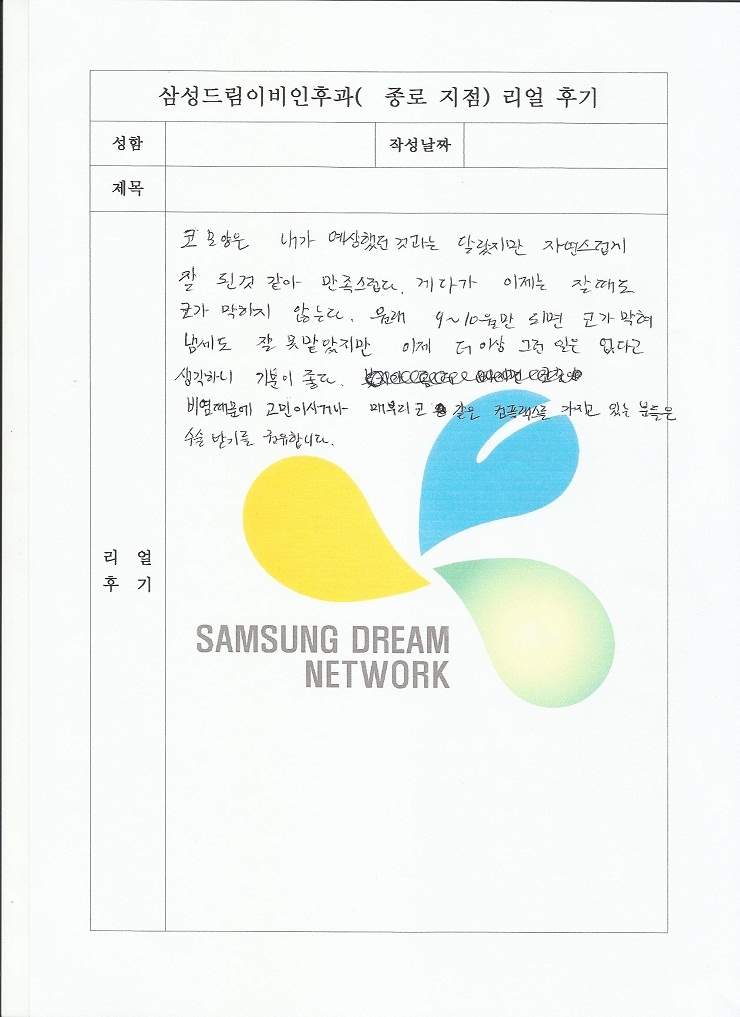 삼성드림이비인후과( 종로 지점) 리얼 후기
성함 작성날짜
제목
코 모양은 내가 예상했던 것과는 달랐지만 자연스럽게
잘 된것 같아 만족스럽다. 게다가 이제는 잘때도
코가 막히지 않는다. 원래 9~10월만 되면 코가 막혀
냄새도 잘 못맡았지만 이제 더 이상 그런 일은 없다고
생각하니 기분이 좋다.
비염때문에 고민이시거나 매부리코 같은 컴플랙스를 가지고 있는 분들은
수술 받기를 권유합니다.
리 얼
후 기
SAMSUNG DREAM
NETWORK